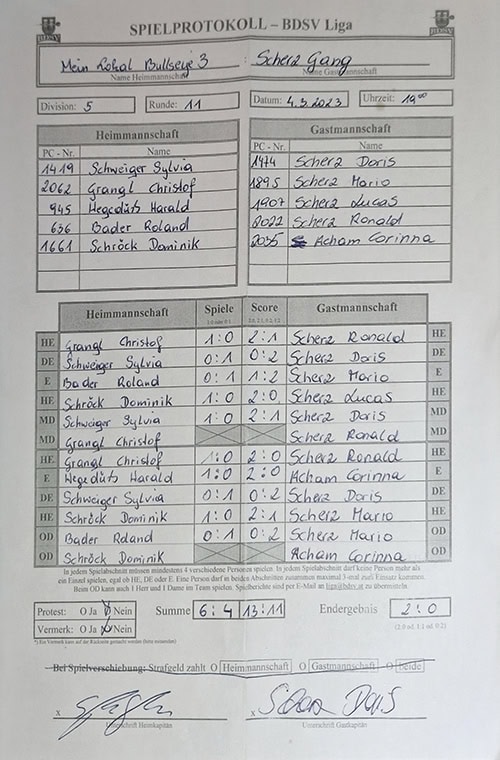 SPIELPROTOKOLL – BDSV Liga
Mein Lokal Bullseye 3 : Scherz Gang
Name Heimmannschaft Name Gastmannschaft
Division: 5 Runde: 11 Datum: 4.3.2023 Uhrzeit: 19⁰⁰
Heimmannschaft Gastmannschaft
PC - Nr. Name PC - Nr. Name
1419 Schweiger Sylvia 1474 Scherz Doris
2062 Grangl Christof 1895 Scherz Mario
945 Hegedüts Harald 1907 Scherz Lucas
636 Bader Roland 2022 Scherz Ronald
1661 Schröck Dominik 2035 Acham Corinna
Heimmannschaft Spiele Score Gastmannschaft
1:0 oder 0:1 2:0, 2:1, 1:2, 0:2
HE Grangl Christof 1:0 2:1 Scherz Ronald HE
DE Schweiger Sylvia 0:1 0:2 Scherz Doris DE
E Bader Roland 0:1 1:2 Scherz Mario E
HE Schröck Dominik 1:0 2:0 Scherz Lucas HE
MD Schweiger Sylvia 1:0 2:1 Scherz Doris MD
MD Grangl Christof Scherz Ronald MD
HE Grangl Christof 1:0 2:0 Scherz Ronald HE
E Hegedüts Harald 1:0 2:0 Acham Corinna E
DE Schweiger Sylvia 0:1 0:2 Scherz Doris DE
HE Schröck Dominik 1:0 2:1 Scherz Mario HE
OD Bader Roland 0:1 0:2 Scherz Mario OD
OD Schröck Dominik Acham Corinna OD
In jedem Spielabschnitt müssen mindestens 4 verschiedene Personen spielen. In jedem Spielabschnitt darf keine Person mehr als
ein Einzel spielen, egal ob HE, DE oder E. Eine Person darf in beiden Abschnitten zusammen maximal 3-mal zum Einsatz kommen.
Beim OD kann auch 1 Herr und 1 Dame im Team spielen. Spielberichte sind per E-Mail an liga@bdsv.at zu übermitteln.
Protest: O Ja O Nein Summe 6:4 13:11 Endergebnis 2:0
Vermerk: O Ja O Nein (2:0 od. 1:1 od. 0:2)
*) Ein Vermerk kann auf der Rückseite notiert werden (bitte ankreuzen)
Bei Spielverschiebung: Strafgeld zahlt O Heimmannschaft O Gastmannschaft O beide
x x Scherz Doris
Unterschrift Heimkapitän Unterschrift Gastkapitän